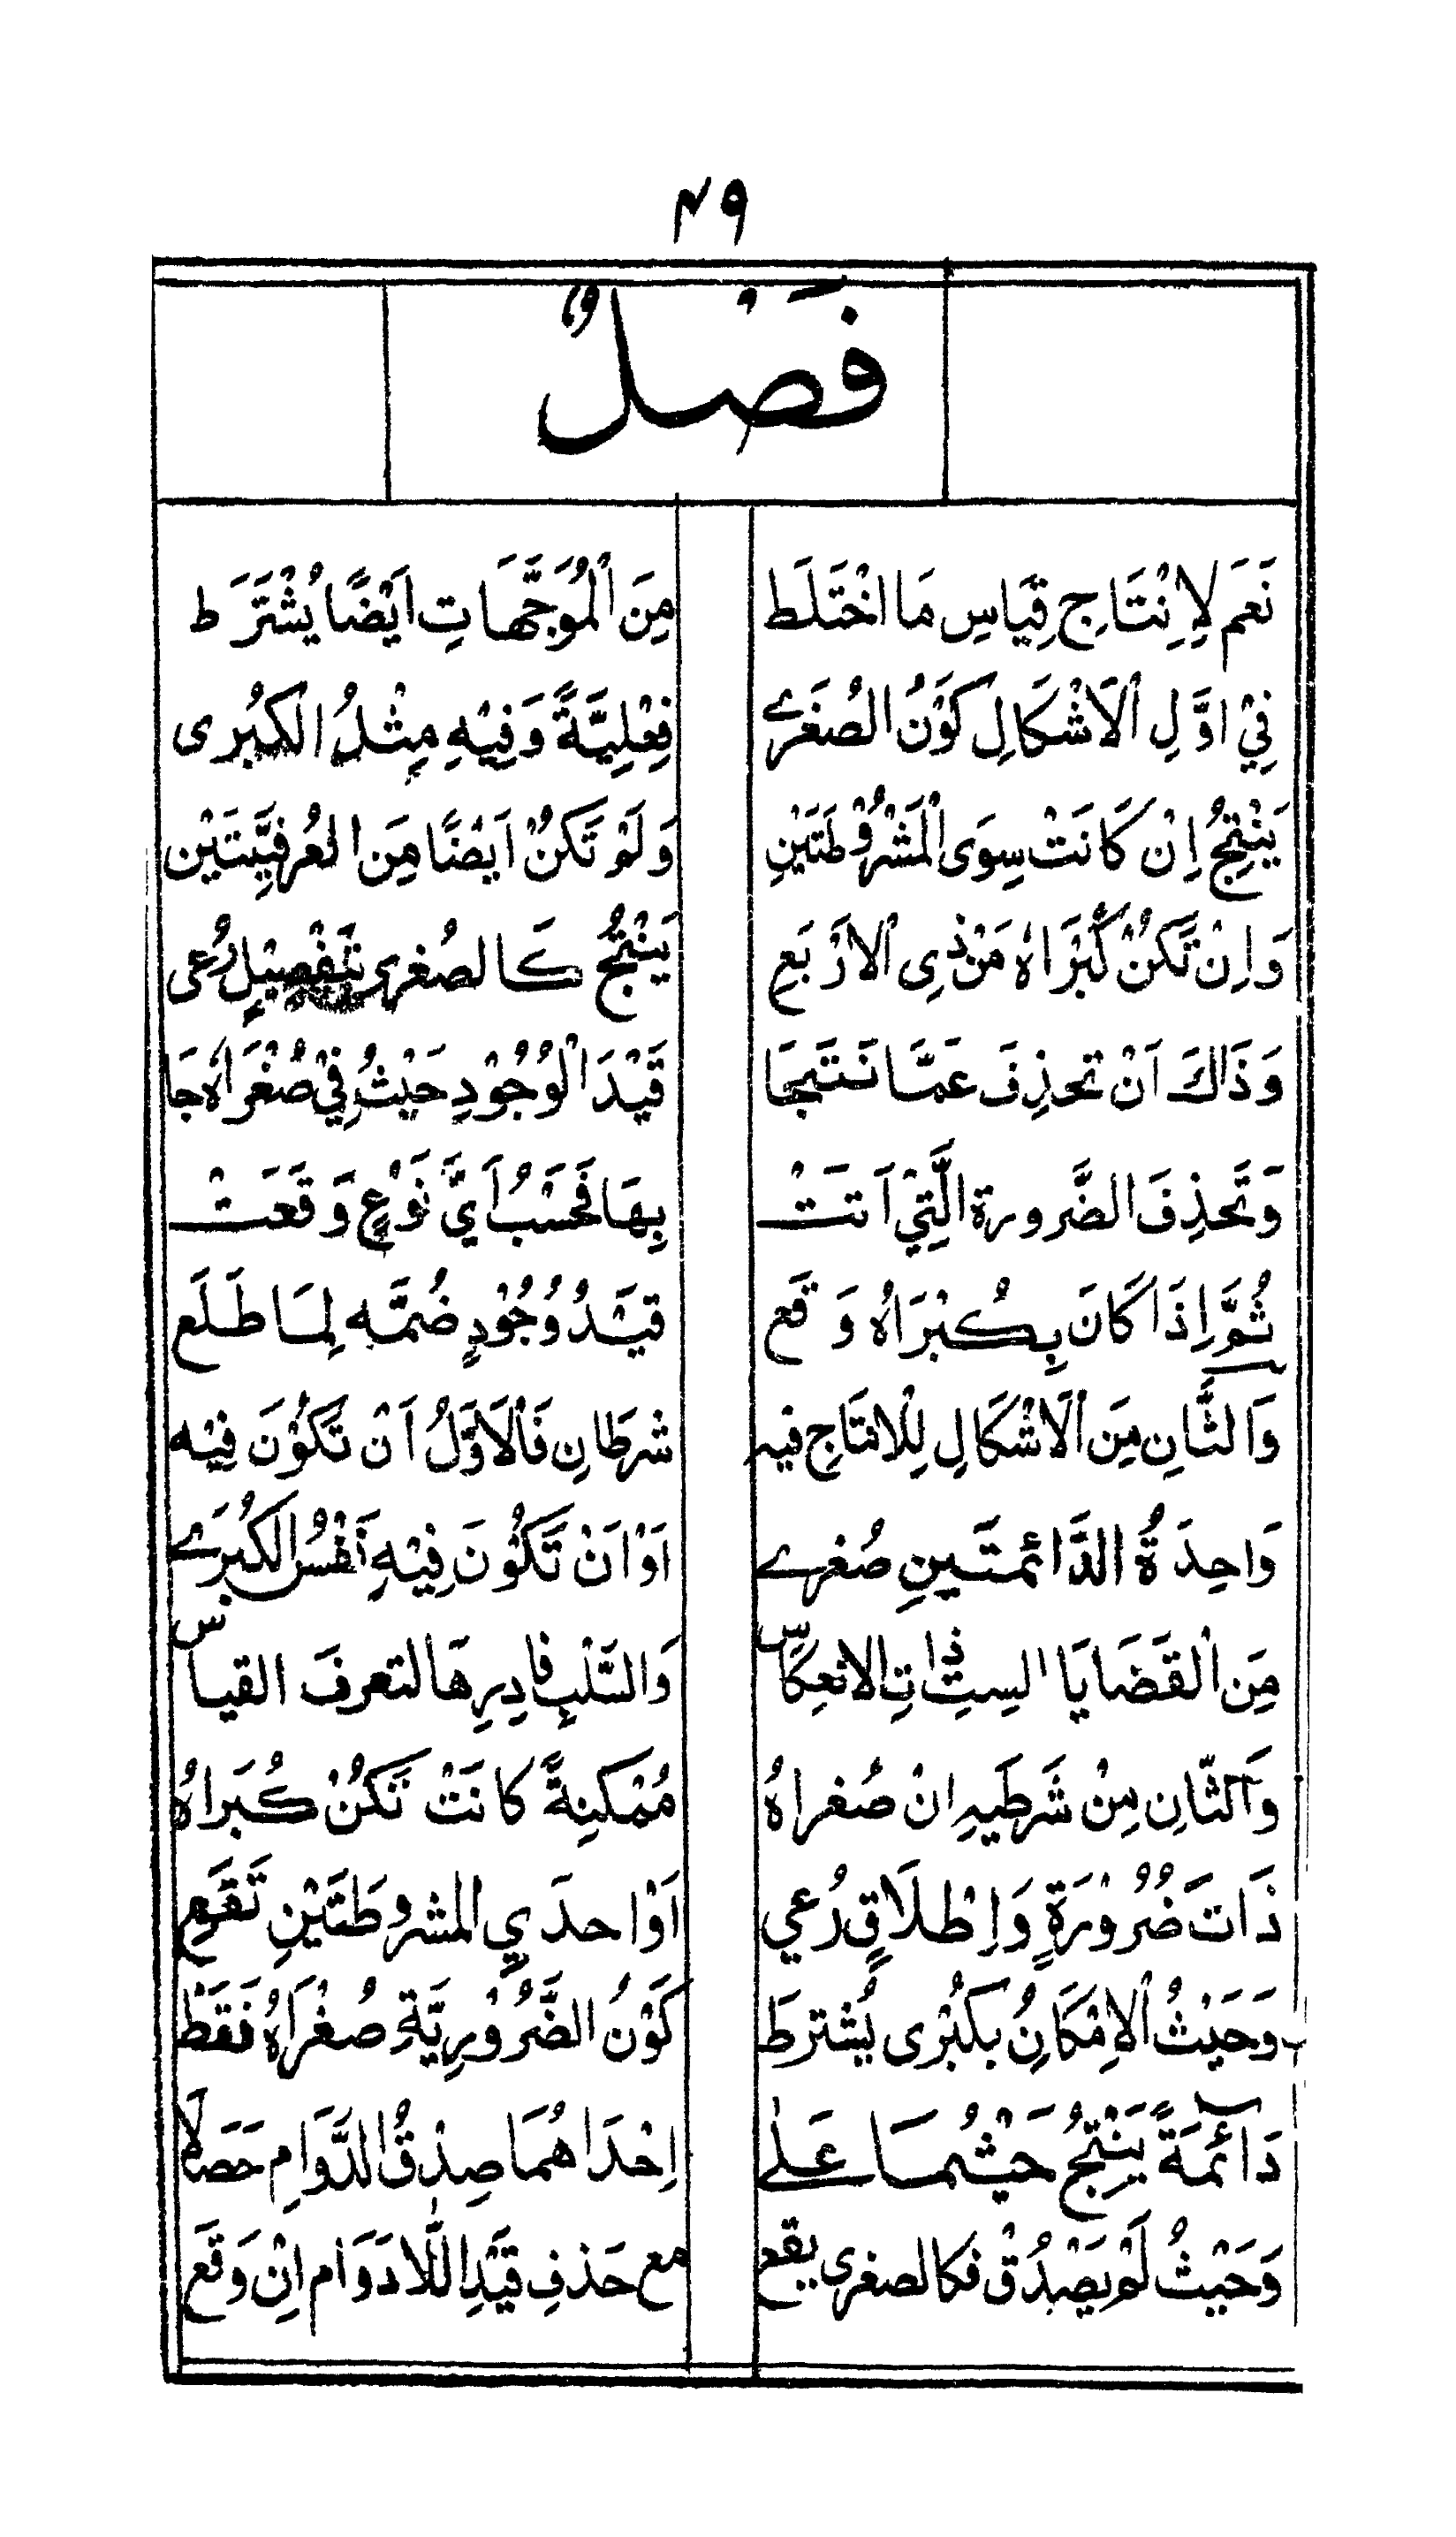 ٤٩
فَصْلٌ
نَعَمَ لِاِنْتَاجِ قِيَاسِ مَا اخْتَلَطَ مِنَ الْمُوَجَّهَاتِ اَيْضًا يُشْتَرَط
فِيْ اوَّلِ الْاَشْكَالِ كَوْنُ الصُغْرَے فِعْلِيَّةً وَفِيْهِ مِثْلُ الكُبْرى
يَنْتِجُ اِنْ كَانَتْ سِوَى الْمَشْرُوْطَتَيْنِ وَلَمْ تَكُنْ اَيْضًا مِنَ العُرْفِيَّتَيْنِ
وَاِنْ تَكُنْ كُبْرَاهُ مِنْ ذِى الْاَرْبَعِ يَنْتِجُ كَالصُغرى بِتَفْصِيْلٍ رُعى
وَذَاكَ اَنْ تحذِفَ عَمَّا نَتَجَا قَيْدَ الْوُجُوْدِ حَيْثُ فِيْ صُغْرَاهُ جَا
وَتَحْذِفَ الضَّرورة الَّتِيْ اَتَتْ بِهَا فَحَسْبُ اَيَّ نَوْعٍ وَقَعَتْ
ثُمَّ اِذَا كَانَ بِكُبْرَاهُ وَقَع قَيْدُ وُجُوْدٍ ضُمَّه لِمَا طَلَع
وَالثَّانِ مِنَ الْاَشْكَالِ لِلْانتَاجِ فيه شرطَانِ فَالْاَوَّلُ اَنْ تَكُوْنَ فِيْه
وَاحِدَةُ الدَّائمتَينِ صُغرے اَوْ اَنْ تَكُوْنَ فِيْهِ نَفْسُ الكُبْرَے
مِنَ الْقَضَايَا السِتِ ذَاتِ الانْعِكاسِ وَالسَّلْبِ فادِرِهَا لتعرفَ القياس
وَالثَّانِ مِنْ شَرطَيهِ انْ صُغراهُ مُمْكِنةً كَانَتْ تَكُنْ كُبْرَاهُ
ذَاتَ ضُرُورَةٍ وَاِطْلَاقٍ رُعي اَوْ احدَيِ المشروطَتَيْنِ تَقَعِ
وَحَيْثُ الْاِمْكَانُ بكُبْرى يُشترطَ كَوْنُ الضَّرُوْرِيَّةِ صُغْرَاهُ فَقَطْ
دَائمَةً يَنْتِجُ حَيْثُمَا عَلى اِحْدَاهُمَا صِدْقُ الدَّوَامِ حَصَلَا
وَحَيْثُ لَمْ يَصْدُقْ فكالصغرى يقع مع حَذفِ قَيْدِ اللَّادَوَام اِنْ وَقَع